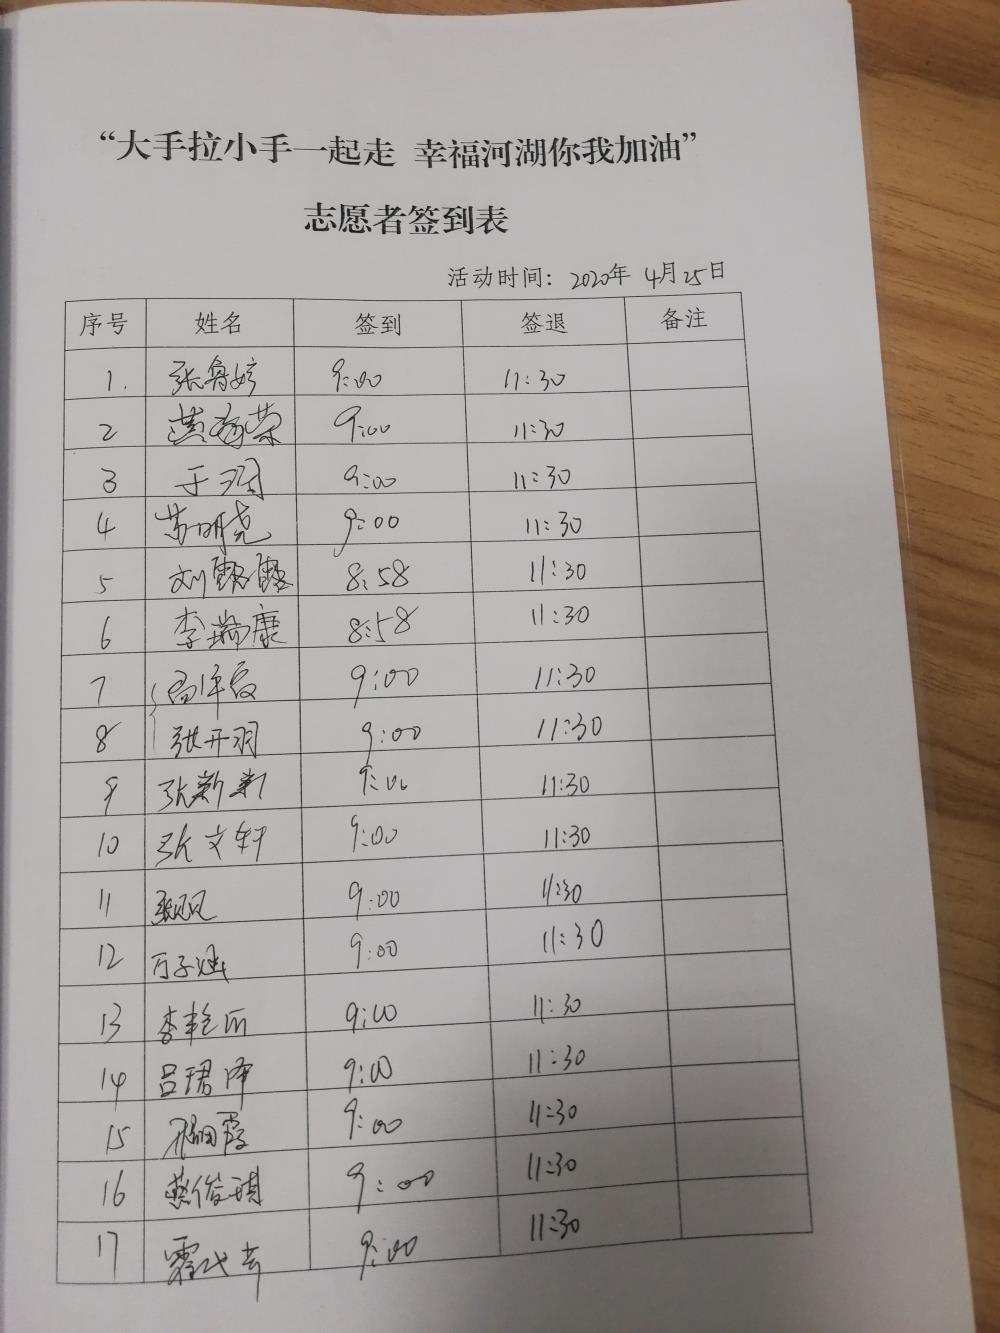 “大手拉小手一起走 幸福河湖你我加油”
志愿者签到表
活动时间: 2020年 4月25日
序号 姓名 签到 签退 备注
1. 张鲁婷 9:00 11:30
2 9:00 11:30
3 于润 9:00 11:30
4 苏明亮 9:00 11:30
5 刘露露 8:58 11:30
6 李瑞康 8:58 11:30
7 9:00 11:30
8 张开羽 9:00 11:30
9 张新新 9:00 11:30
10 张文轩 9:00 11:30
11 9:00 11:30
12 万子涵 9:00 11:30
13 李艳 9:00 11:30
14 吕珺泽 9:00 11:30
15 9:00 11:30
16 俊琪 9:00 11:30
17 9:00 11:30